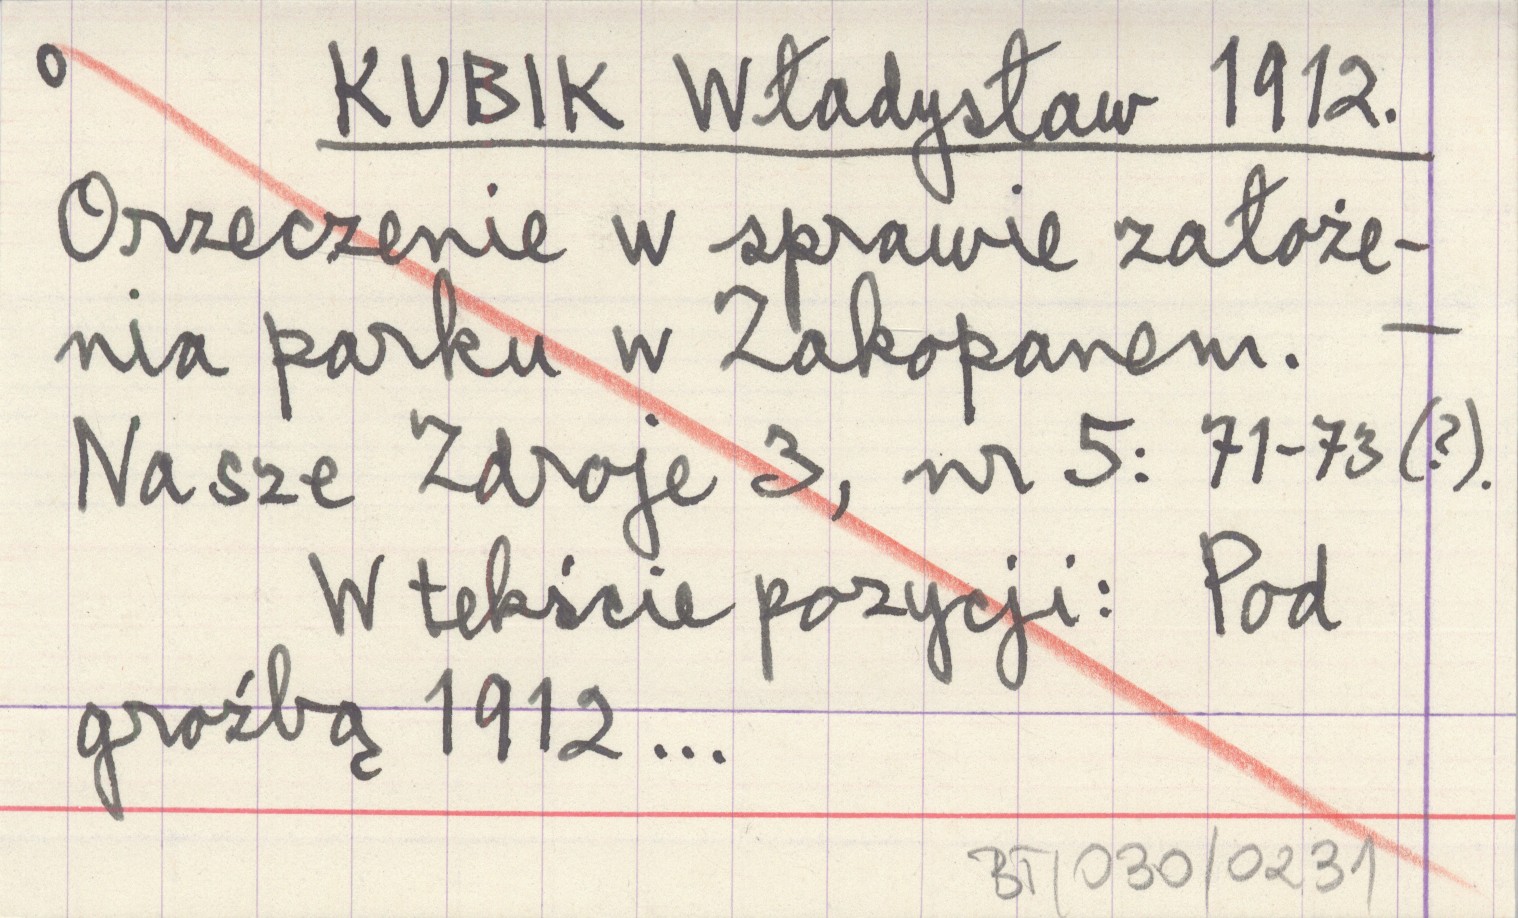 o KUBIK Władysław 1912.
Orzeczenie w sprawie założe-
nia parku w Zakopanem. —
Nasze Zdroje 3, nr 5: 71-73 (?).
W tekście pozycji: Pod
groźbą 1912...
BT/030/0231